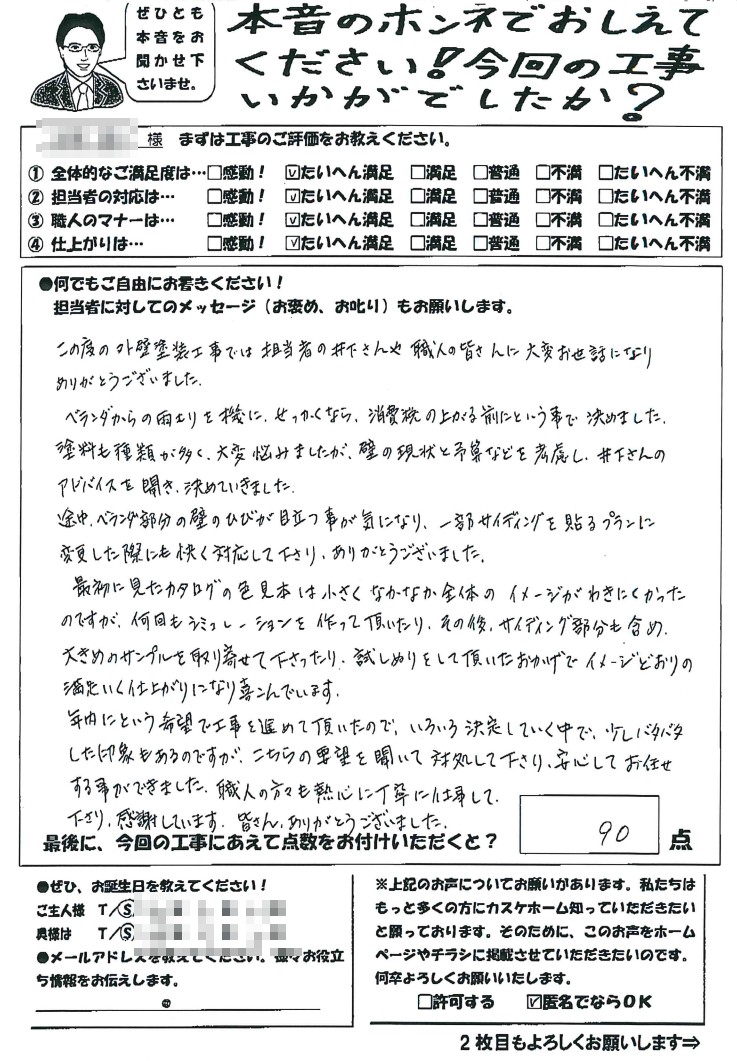 ぜひとも
本音をお
聞かせ下
さいませ。
本音のホンネでおしえて
ください!今回の工事
いかがでしたか?
様 まずは工事のご評価をお教えください。
① 全体的なご満足度は…□感動! ☑たいへん満足 □満足 □普通 □不満 □たいへん不満
② 担当者の対応は… □感動! ☑たいへん満足 □満足 □普通 □不満 □たいへん不満
③ 職人のマナーは… □感動! ☑たいへん満足 □満足 □普通 □不満 □たいへん不満
④ 仕上がりは… □感動! ☑たいへん満足 □満足 □普通 □不満 □たいへん不満
●何でもご自由にお書きください!
担当者に対してのメッセージ(お褒め、お叱り)もお願いします。
この度の外壁塗装工事では担当者の井下さんや職人の皆さんに大変お世話になり
ありがとうございました。
ベランダからの雨もりを機に、せっかくなら、消費税の上がる前にという事で決めました。
塗料も種類が多く、大変悩みましたが、壁の現状と予算などを考慮し、井下さんの
アドバイスを聞き、決めていきました。
途中、ベランダ部分の壁のひびが目立つ事が気になり、一部サイディングを貼るプランに
変更した際にも快く対応して下さり、ありがとうございました。
最初に見たカタログの色見本は小さくなかなか全体のイメージがわきにくかった
のですが、何回もシミュレーションを作って頂いたり、その後、サイディング部分も含め、
大きめのサンプルを取り寄せて下さったり、試しぬりをして頂いたおかげでイメージどおりの
満足いく仕上がりになり喜んでいます。
年内にという希望で工事を進めて頂いたので、いろいろ決定していく中で、少しバタバタ
した印象もあるのですが、こちらの要望を聞いて対処して下さり、安心してお任せ
する事ができました。職人の方々も熱心に丁寧に仕事して
下さり、感謝しています。皆さん、ありがとうございました。
最後に、今回の工事にあえて点数をお付けいただくと? 90 点
●ぜひ、お誕生日を教えてください!
ご主人様 T/Ⓢ
奥様は T/Ⓢ
●メールアドレスを教えてください。様々お役立
ち情報をお伝えします。
@
※上記のお声についてお願いがあります。私たちは
もっと多くの方にカスケホーム知っていただきたい
と願っております。そのために、このお声をホーム
ページやチラシに掲載させていただきたいのです。
何卒よろしくお願いいたします。
□許可する ☑匿名でならOK
2枚目もよろしくお願いします⇒